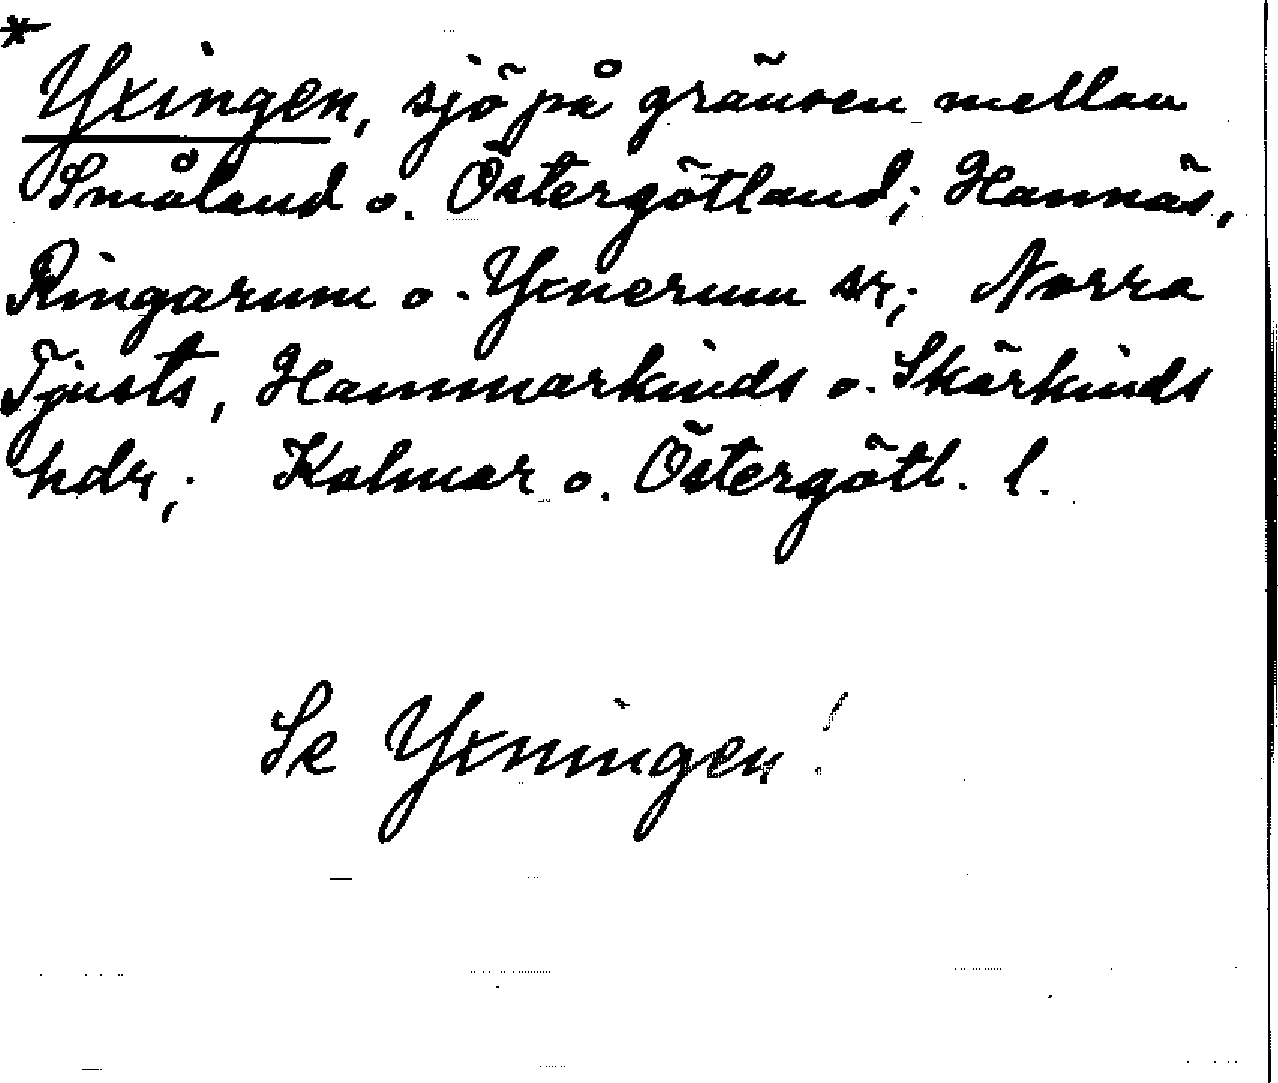 * Yxingen, sjö på gränsen mellan
Småland o. Östergötland; Hannäs,
Ringarum o. Yxnerum snr; Norra
Tjusts, Hammarkinds o. Skärkinds
hdr; Kalmar o. Östergötl. l.
Se Yxningen!